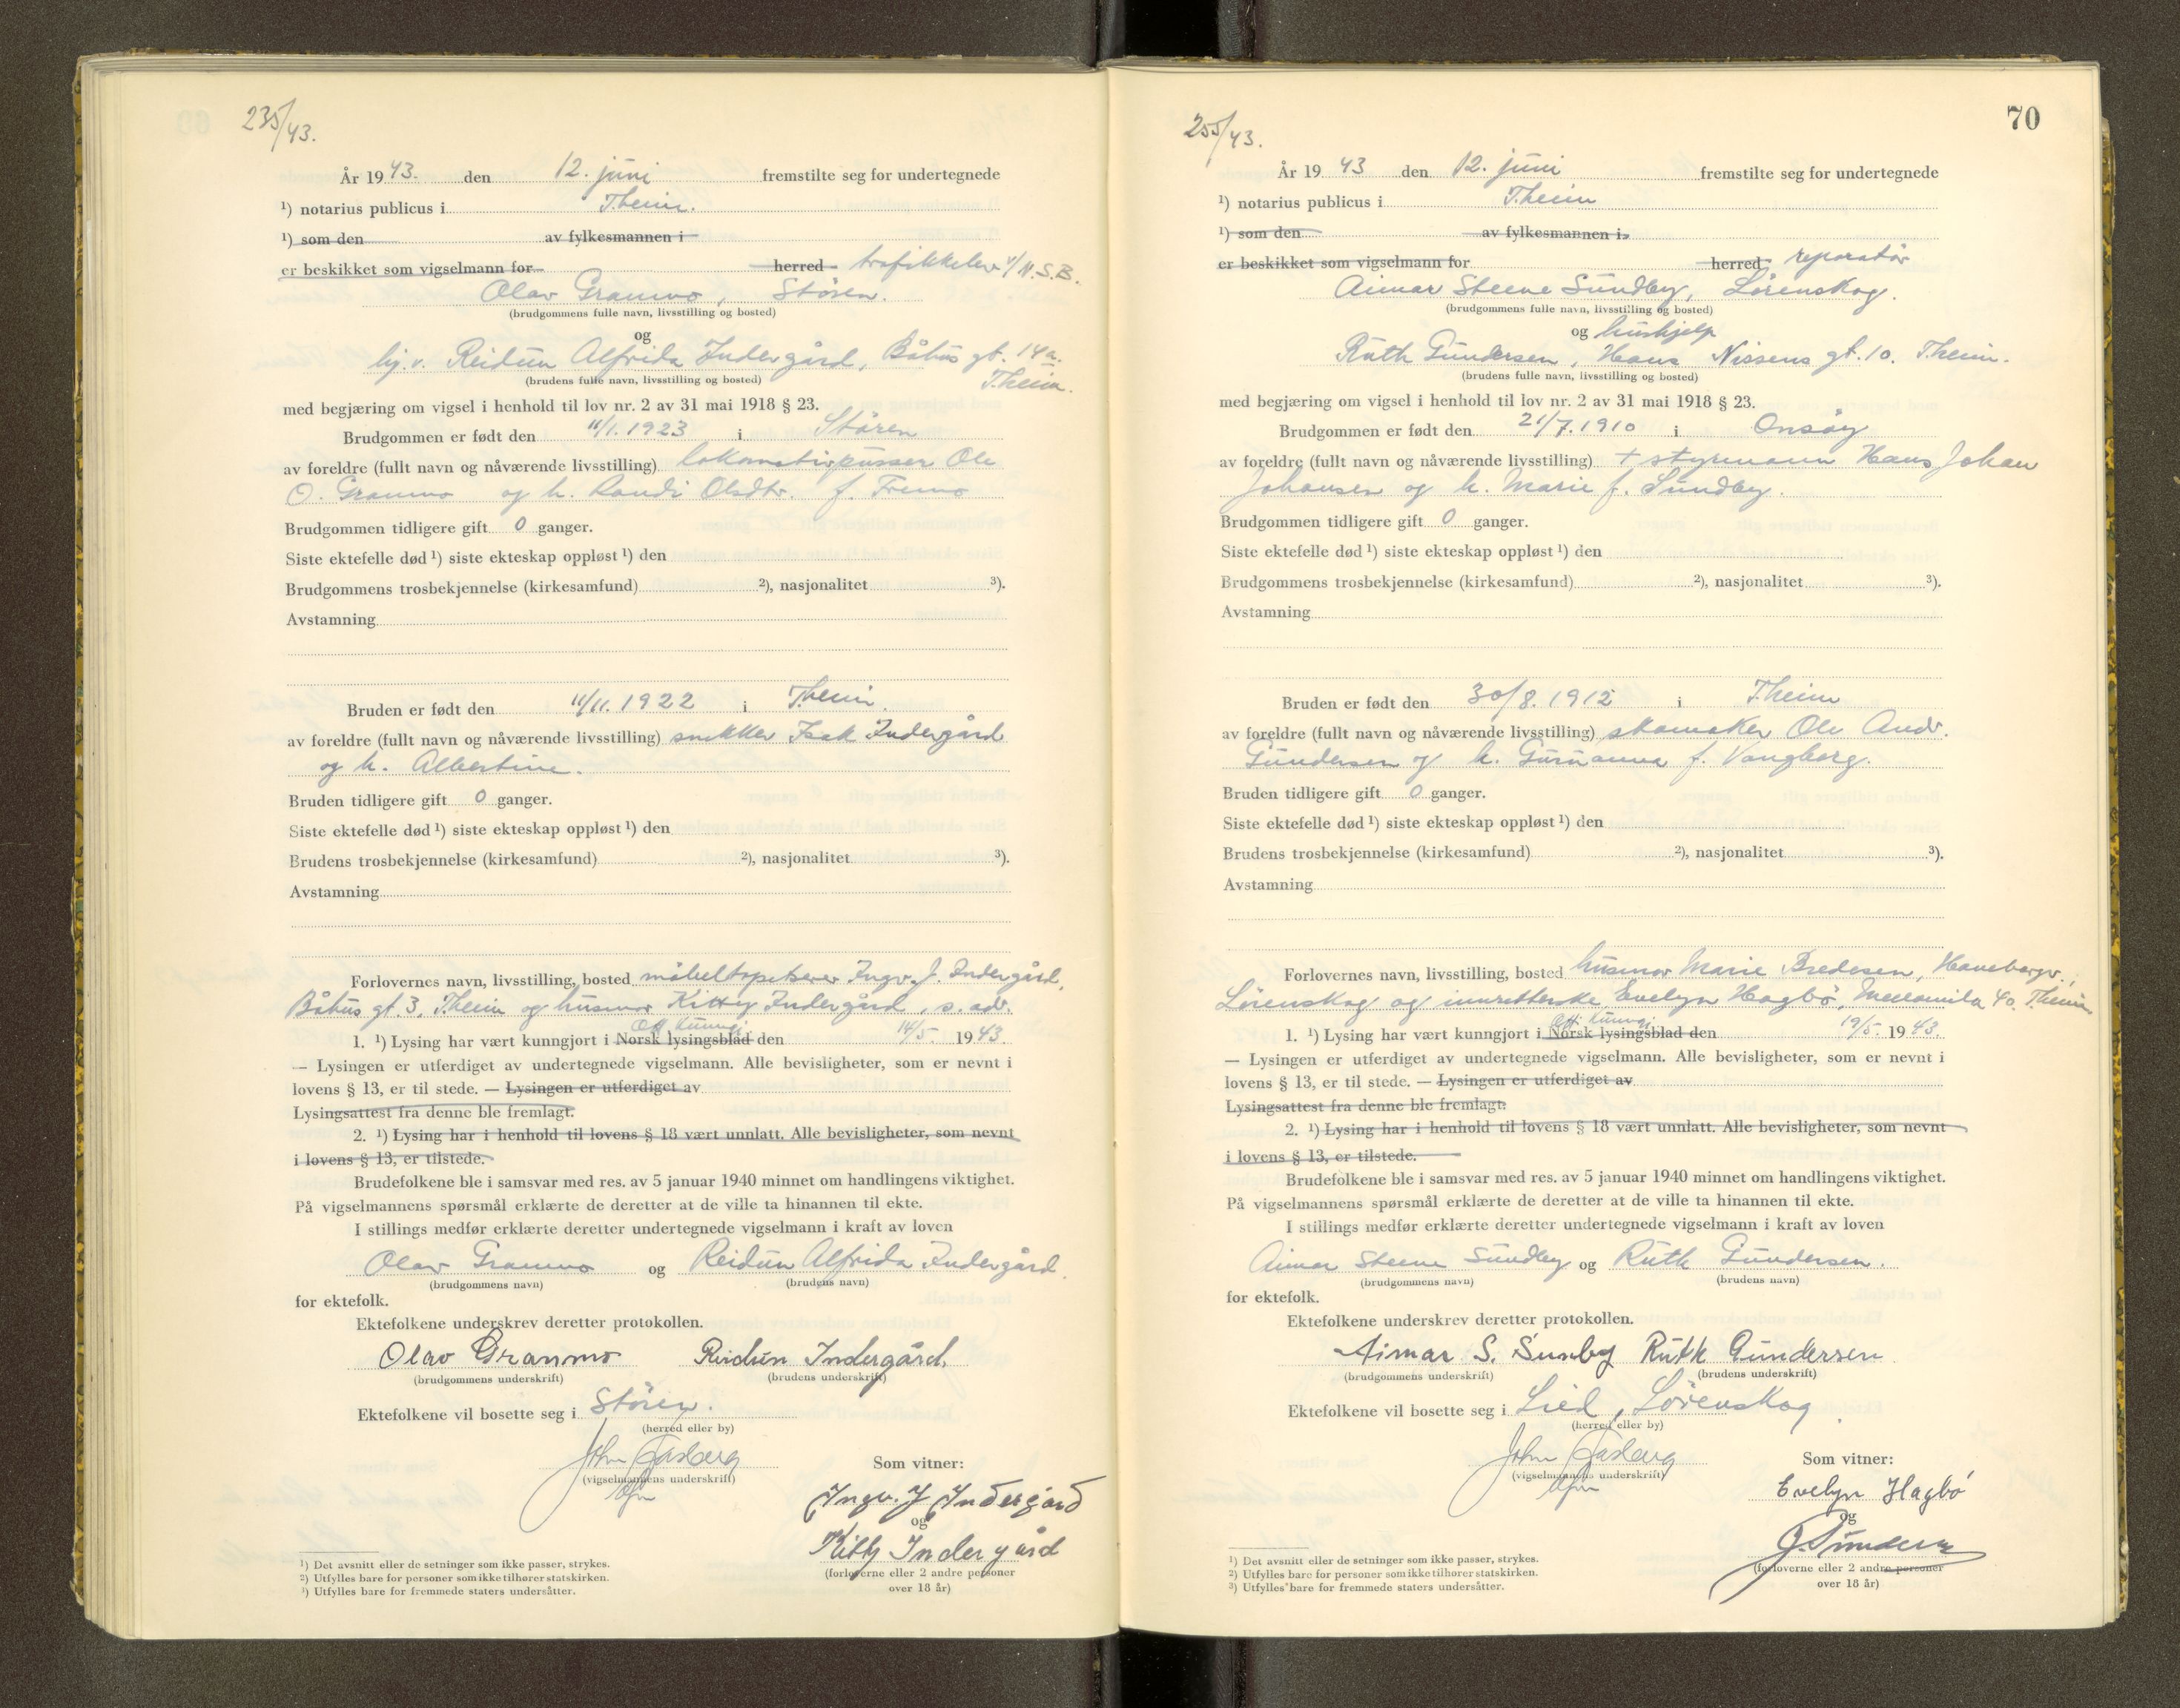 235/43.
År 1943. den 12. juni fremstilte seg for undertegnede
¹) notarius publicus i T.heim.
¹) som den av fylkesmannen i
er beskikket som vigselmann for herred trafikkelev v/N.S.B.
Olav Granmo, Støren.
(brudgommens fulle navn, livsstilling og bosted)
og
hj.v. Reidun Alfrida Indergård, Båhus gt. 14a.
T.heim.
(brudens fulle navn, livsstilling og bosted)
med begjæring om vigsel i henhold til lov nr. 2 av 31 mai 1918 § 23.
Brudgommen er født den 11/1. 1923 i Støren
av foreldre (fullt navn og nåværende livsstilling) lokomotivpusser Ole
O. Granmo og h. Randi Olsdtr. f. Fremo
Brudgommen tidligere gift 0 ganger.
Siste ektefelle død ¹) siste ekteskap oppløst ¹) den
Brudgommens trosbekjennelse (kirkesamfund) ²), nasjonalitet ³).
Avstamning
Bruden er født den 11/11. 1922 i T.heim.
av foreldre (fullt navn og nåværende livsstilling) snekker Isak Indergård
og h. Albertine.
Bruden tidligere gift 0 ganger.
Siste ektefelle død ¹) siste ekteskap oppløst ¹) den
Brudens trosbekjennelse (kirkesamfund) ²), nasjonalitet ³).
Avstamning
Forlovernes navn, livsstilling, bosted møbeltapetserer Ingv. J. Indergård,
Båhus gt. 3, T.heim og husmor Kitty Indergård, s. adr.
Off. kunngj.
1. ¹) Lysing har vært kunngjort i Norsk lysingsblad den 14/5. 1943.
— Lysingen er utferdiget av undertegnede vigselmann. Alle bevisligheter, som er nevnt i
lovens § 13, er til stede. — Lysingen er utferdiget av
Lysingsattest fra denne ble fremlagt.
2. ¹) Lysing har i henhold til lovens § 18 vært unnlatt. Alle bevisligheter, som nevnt
i lovens § 13, er tilstede.
Brudefolkene ble i samsvar med res. av 5 januar 1940 minnet om handlingens viktighet.
På vigselmannens spørsmål erklærte de deretter at de ville ta hinannen til ekte.
I stillings medfør erklærte deretter undertegnede vigselmann i kraft av loven
Olav Granmo og Reidun Alfrida Indergård.
(brudgommens navn) (brudens navn)
for ektefolk.
Ektefolkene underskrev deretter protokollen.
Olav Granmo Reidun Indergård.
(brudgommens underskrift) (brudens underskrift)
Ektefolkene vil bosette seg i Støren.
(herred eller by)
John
(vigselmannens underskrift)
Som vitner:
Ingv. J Indergård
og
Kitty Indergård
(forloverne eller 2 andre personer
over 18 år)
¹) Det avsnitt eller de setninger som ikke passer, strykes.
²) Utfylles bare for personer som ikke tilhører statskirken.
³) Utfylles bare for fremmede staters undersåtter.
70
255/43.
År 1943 den 12. juni fremstilte seg for undertegnede
¹) notarius publicus i T.heim
¹) som den av fylkesmannen i
er beskikket som vigselmann for herred reparatør
Aimar Steene Sundby, Lørenskog.
(brudgommens fulle navn, livsstilling og bosted)
og hushjelp
Ruth Gundersen, Hans Nissens gt. 10. T.heim.
(brudens fulle navn, livsstilling og bosted)
med begjæring om vigsel i henhold til lov nr. 2 av 31 mai 1918 § 23.
Brudgommen er født den 21/7. 1910 i Onsøy
av foreldre (fullt navn og nåværende livsstilling) + styrmann Hans Johan
Johansen og h. Marie f. Sundby.
Brudgommen tidligere gift 0 ganger.
Siste ektefelle død ¹) siste ekteskap oppløst ¹) den
Brudgommens trosbekjennelse (kirkesamfund) ²), nasjonalitet ³).
Avstamning
Bruden er født den 30/8. 1912 i T.heim
av foreldre (fullt navn og nåværende livsstilling) skomaker Ole Andr.
Gundersen og h. Gurianna f. Vangberg.
Bruden tidligere gift 0 ganger.
Siste ektefelle død ¹) siste ekteskap oppløst ¹) den
Brudens trosbekjennelse (kirkesamfund) ²), nasjonalitet ³).
Avstamning
Forlovernes navn, livsstilling, bosted husmor Marie Bredesen, Hanebergv.,
Lørenskog og innretterske Evelyn Hagbø, Mellomila 40. T.heim.
Off. kunngj.
1. ¹) Lysing har vært kunngjort i Norsk lysingsblad den 19/5. 1943.
— Lysingen er utferdiget av undertegnede vigselmann. Alle bevisligheter, som er nevnt i
lovens § 13, er til stede. — Lysingen er utferdiget av
Lysingsattest fra denne ble fremlagt.
2. ¹) Lysing har i henhold til lovens § 18 vært unnlatt. Alle bevisligheter, som nevnt
i lovens § 13, er tilstede.
Brudefolkene ble i samsvar med res. av 5 januar 1940 minnet om handlingens viktighet.
På vigselmannens spørsmål erklærte de deretter at de ville ta hinannen til ekte.
I stillings medfør erklærte deretter undertegnede vigselmann i kraft av loven
Aimar Steene Sundby og Ruth Gundersen.
(brudgommens navn) (brudens navn)
for ektefolk.
Ektefolkene underskrev deretter protokollen.
Aimar S. Sunby Ruth Gundersen
(brudgommens underskrift) (brudens underskrift)
Ektefolkene vil bosette seg i Lied, Lørenskog
(herred eller by)
John
(vigselmannens underskrift)
Som vitner:
Evelyn Hagbø
og
(forloverne eller 2 andre personer
over 18 år)
¹) Det avsnitt eller de setninger som ikke passer, strykes.
²) Utfylles bare for personer som ikke tilhører statskirken.
³) Utfylles bare for fremmede staters undersåtter.